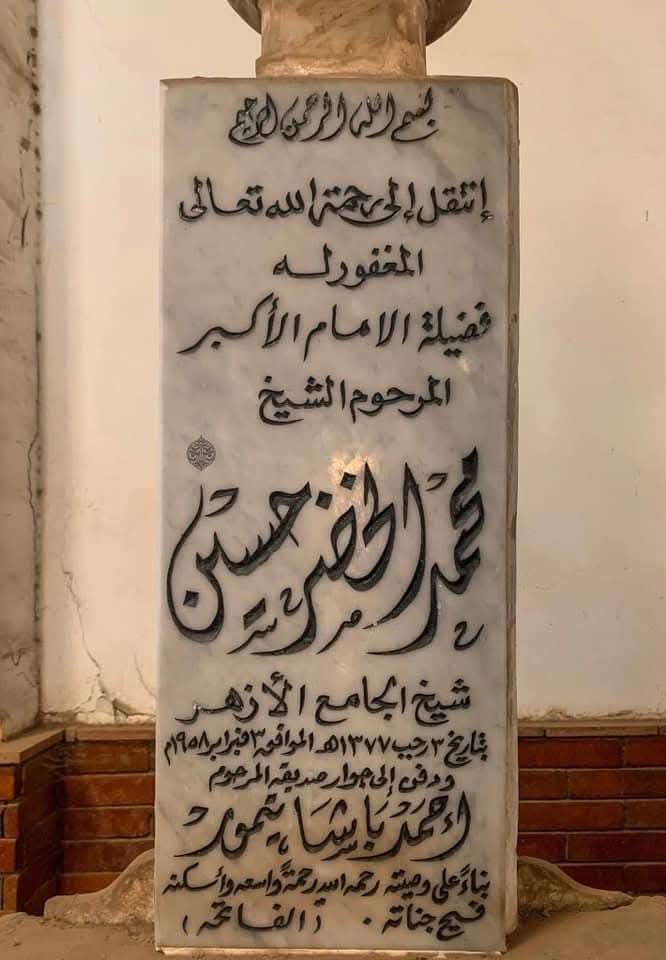 بسم الله الرحمن الرحيم
إنتقل إلى رحمة الله تعالى
المغفور له
فضيلة الامام الأكبر
المرحوم الشيخ
محمد الخضر حسين
شيخ الجامع الأزهر
بتاريخ ١٣ رجب ١٣٧٧هـ الموافق ٣ فبراير ١٩٥٨م
ودفن إلى جوار صديقه المرحوم
أحمد باشا تيمور
بناءً على وصيته رحمه الله رحمةً واسعه وأسكنه
فسيح جناته . ( الفاتحه )